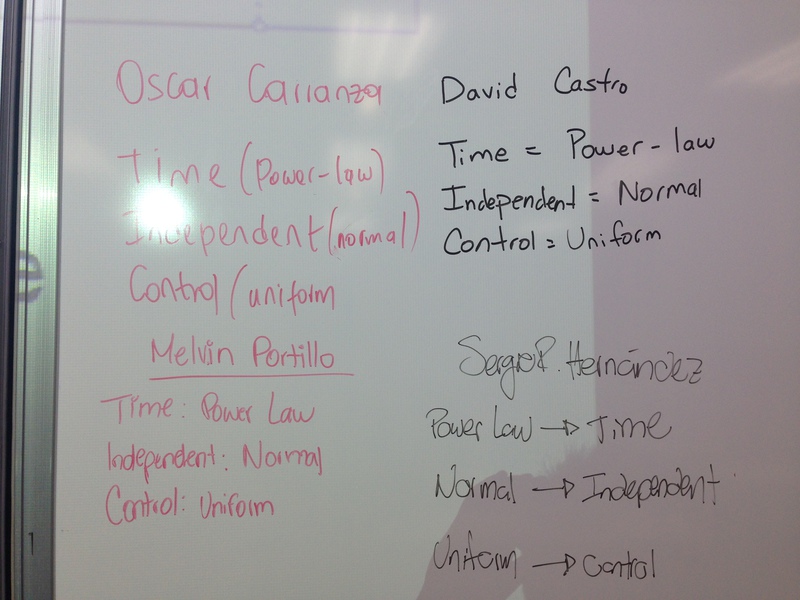 Oscar Carranza
Time (Power-law)
Independent (normal)
Control (uniform
Melvin Portillo
Time: Power Law
Independent: Normal
Control: Uniform
David Castro
Time = Power-law
Independent = Normal
Control = Uniform
Sergio R. Hernández
Power Law → Time
Normal → Independent
Uniform → Control